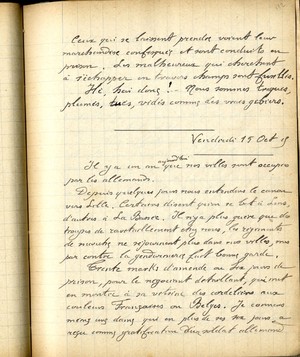 Ceux qui se laissent prendre voient leur
marchandise confisquée et sont conduits en
prison. Les malheureux qui cherchent
à s'échapper en travers champs sont fusillés.
Hé, hui donc! Nous sommes traqués,
plumés, tués, vidés comme des vrais gibiers.
Vendredi 15 Oct 15
Il y a un an aujourd'hui que nos villes sont occupées
par les allemands.
Depuis quelques jours nous entendons le canon
vers Lille. Certains disent qu'on se bat à Lens,
d'autres à La Bassée. Il n'y a plus guère que des
troupes de ravitaillement chez nous, les régiments
de ne séjournent plus dans nos villes, mais
par contre la gendarmerie fait bonne garde.
Trente marks d'amende ou six jours de
prison, pour le négociant détaillant, qui met
en montre à sa vitrine des cordelières aux
couleurs Françaises ou Belges. Je connais
même une dame qui en plus de ses six jours, a
reçu comme gratification d'un soldat allemand